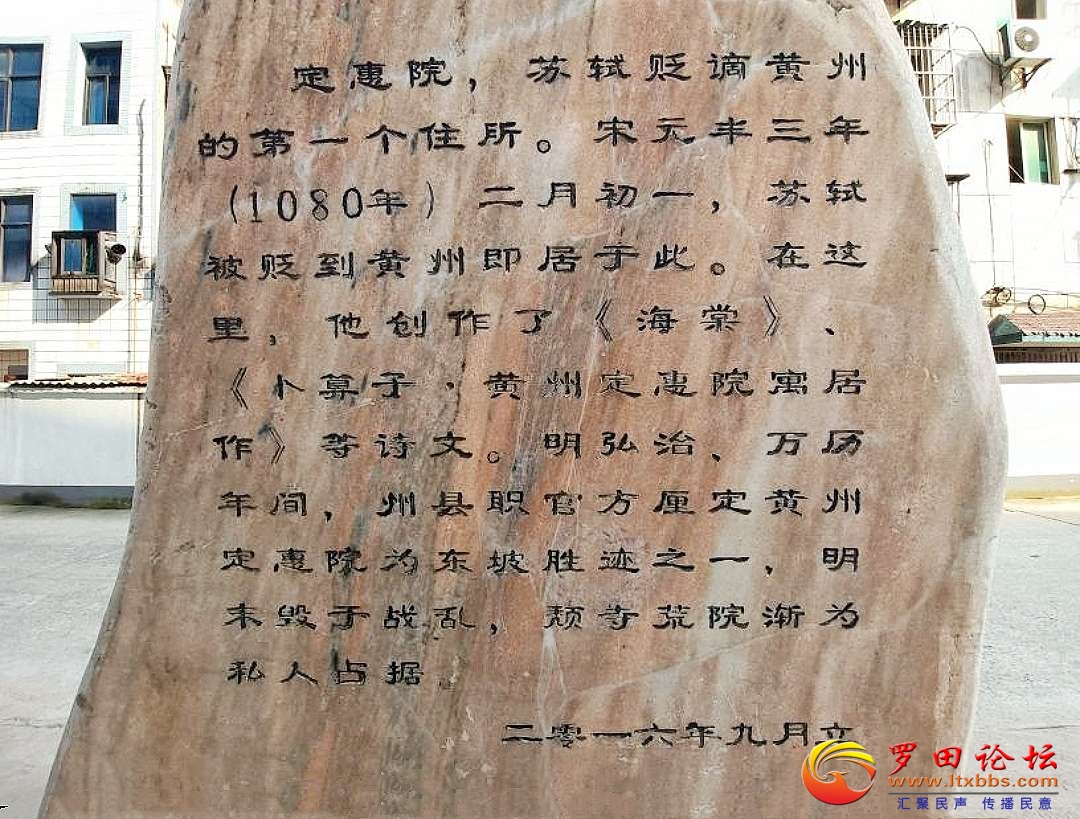 定惠院，苏轼贬谪黄州
的第一个住所。宋元丰三年
（1080年）二月初一，苏轼
被贬到黄州即居于此。在这
里，他创作了《海棠》、
《卜算子·黄州定惠院寓居
作》等诗文。明弘治、万历
年间，州县职官方厘定黄州
定惠院为东坡胜迹之一，明
末毁于战乱，颓寺荒院渐为
私人占据.
二零一六年九月立
罗田论坛
www.ltxbbs.com
汇聚民声 传播民意